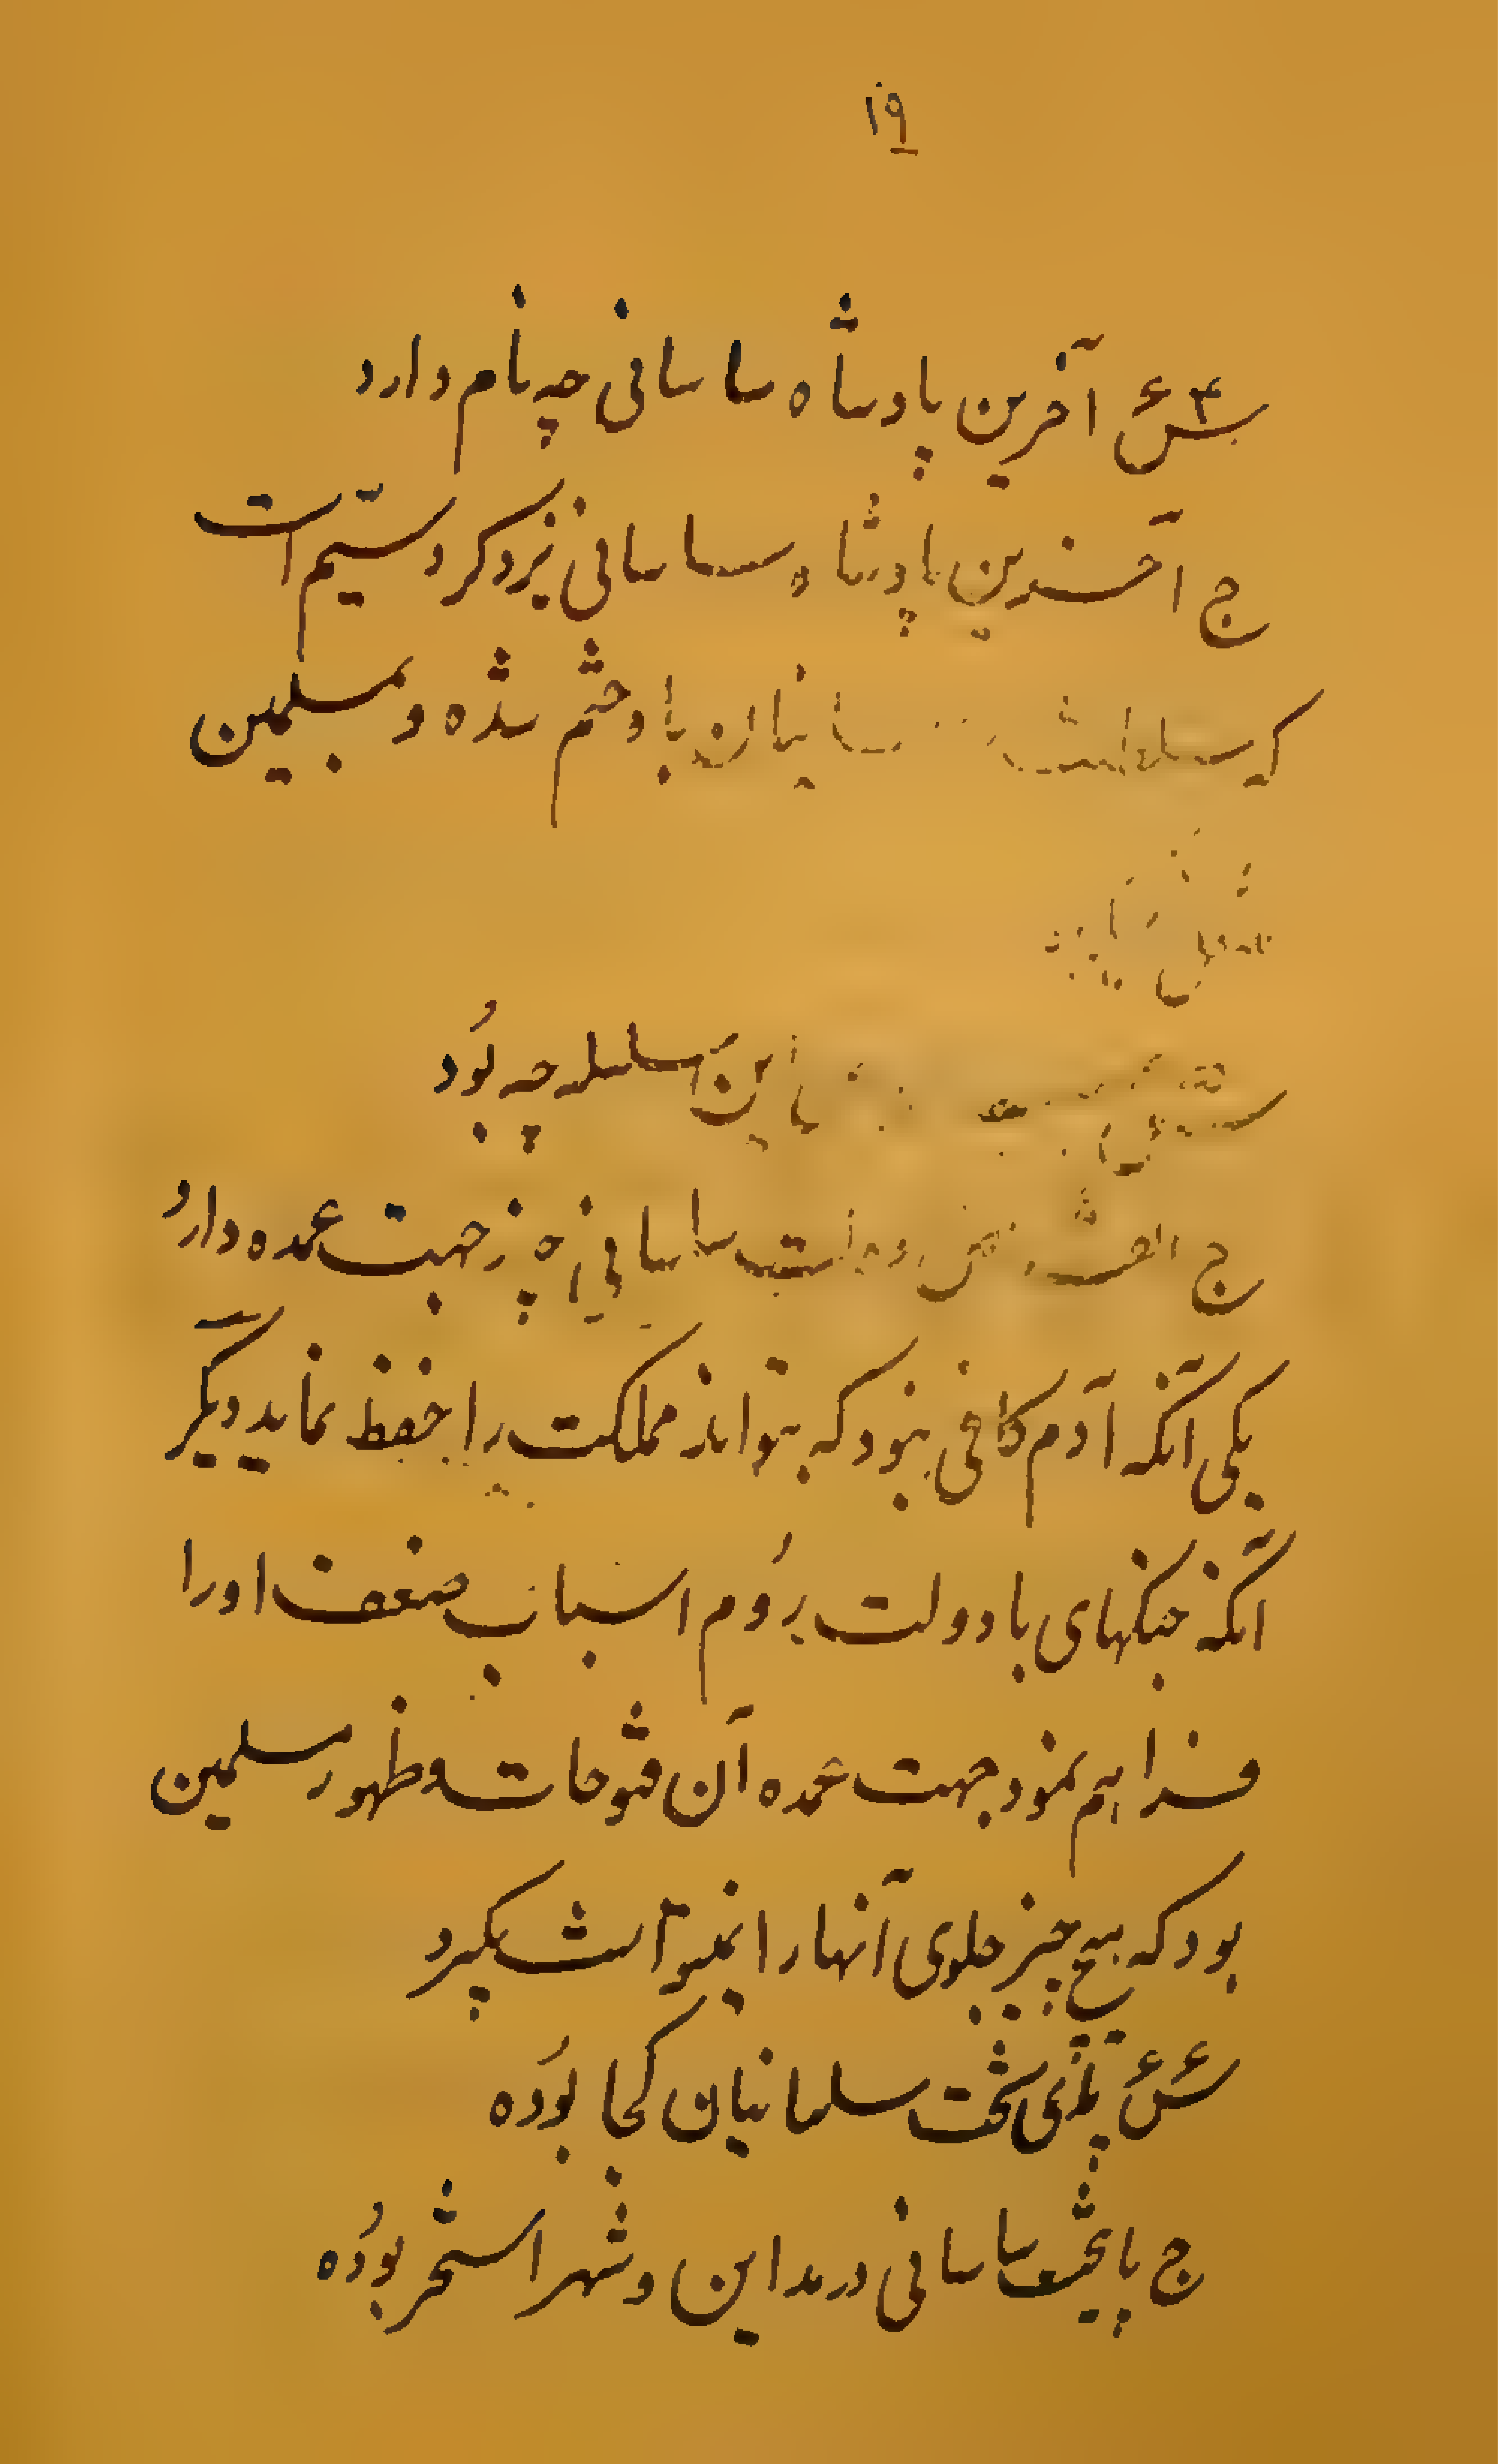 ۱۹
س۴ آخرین پادشاه ساسانی چه نام دارد
ج آخرین پادشاه ساسانی یزدگرد سیّم است
که سلطنت ساسانیان باو ختم شده و بمسلمین
این سلسله چه بُود
ج دولت ساسانی چه جهت عمده دارد
یکی آنکه آدم کافی نبود که بتواند مملکت را حفظ نماید دیگر
آنکه جنگهای با دولت رُوم اسباب ضعف او را
فراهم نمود جهت عمده آن فتوحات و ظهور مسلمین
بود که هیچ چیز جلوی آنها را نمیتوانست بگیرد
پای تخت ساسانیان کجا بُوده
ج پایتخت ساسانی در مداین و شهر استخر بُوده